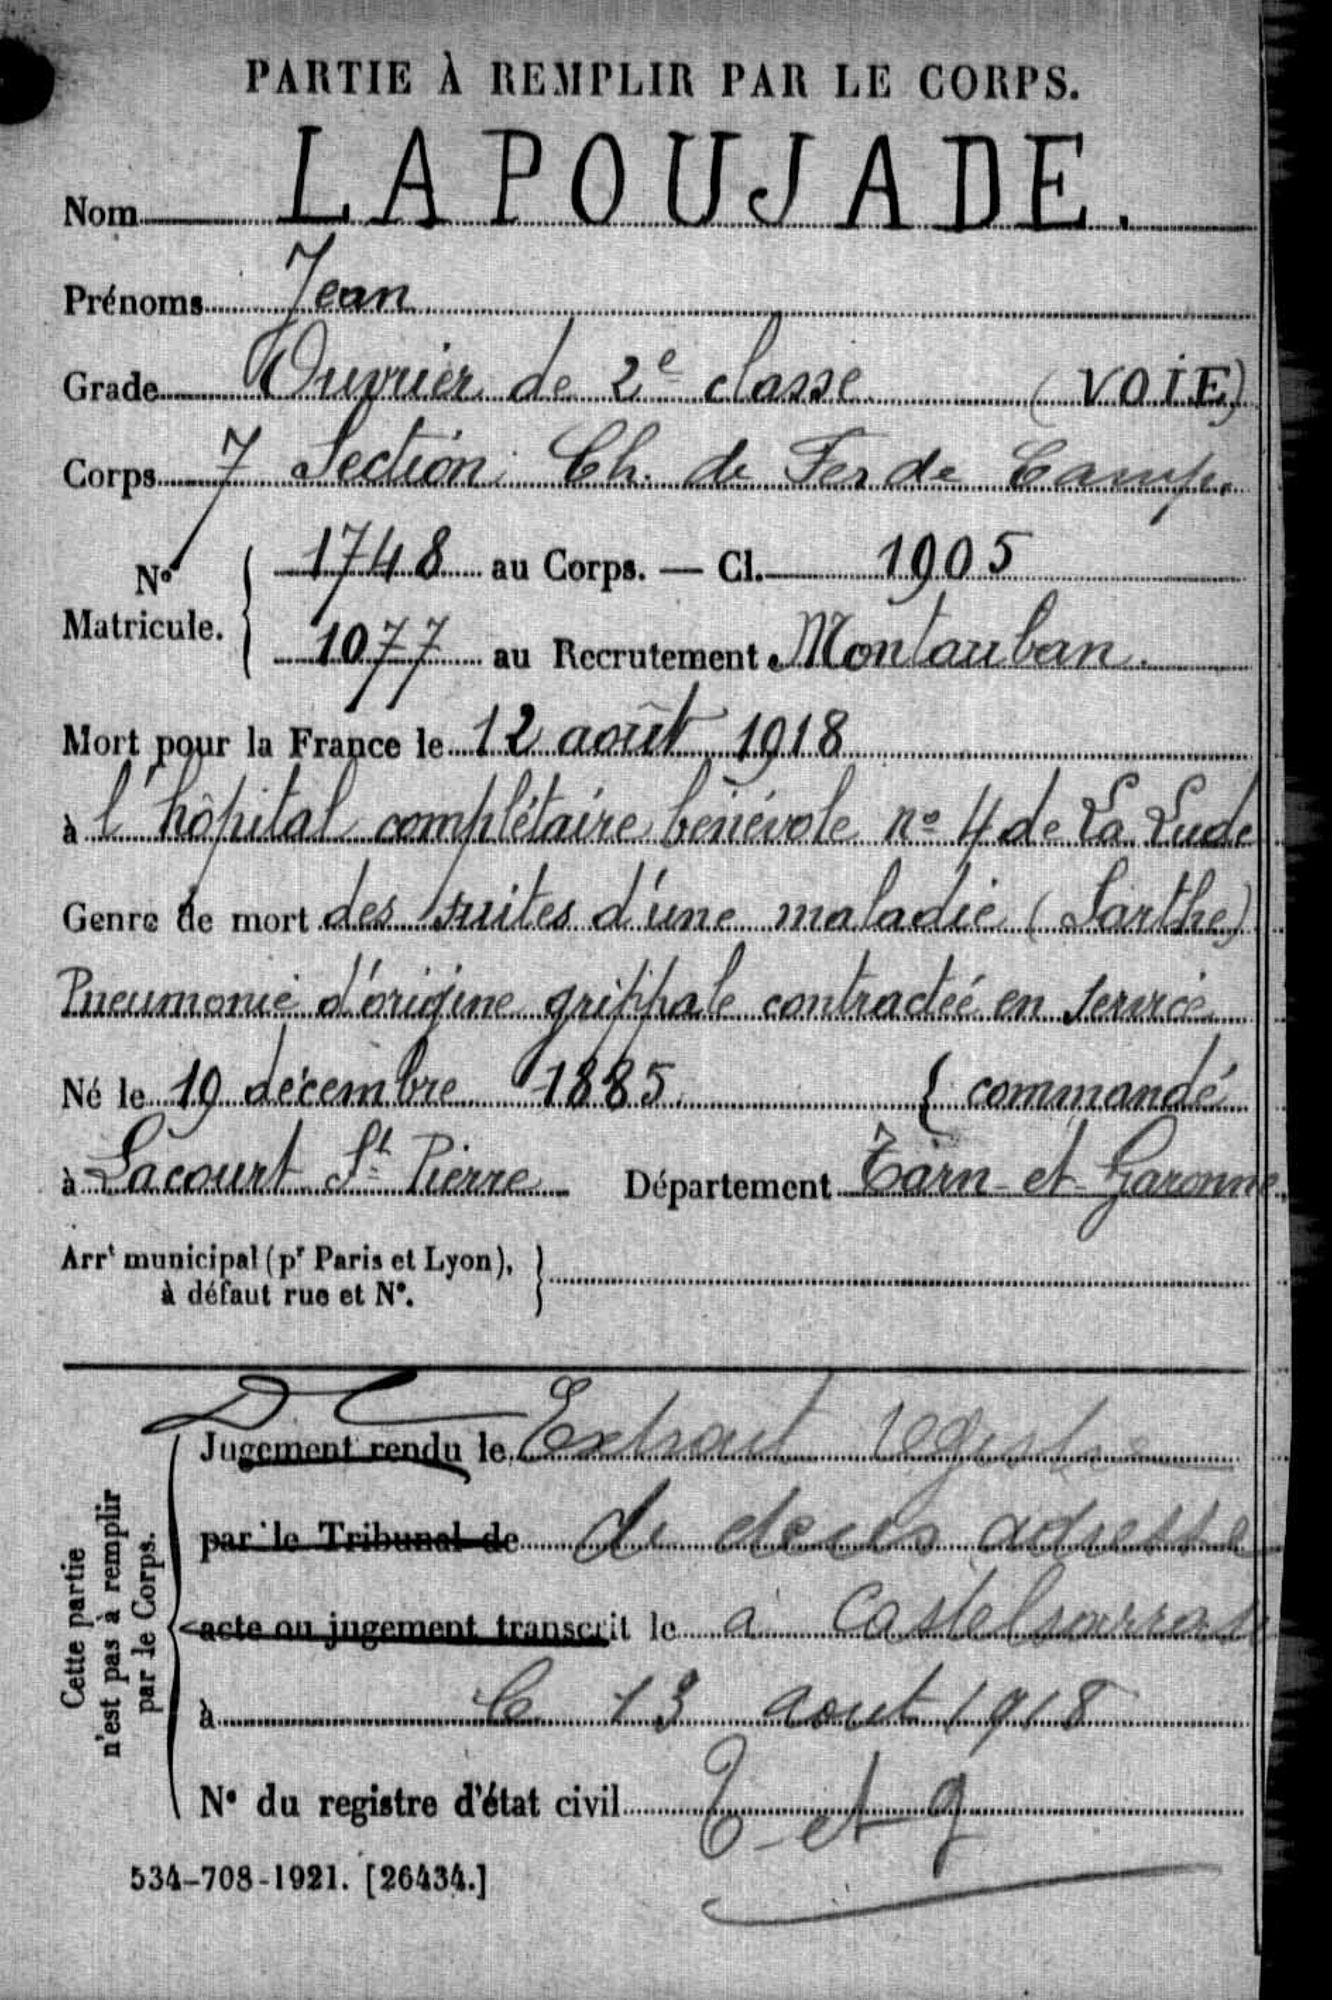 PARTIE À REMPLIR PAR LE CORPS.
Nom LAPOUJADE.
Prénoms Jean
Grade Ouvrier de 2e classe (VOIE)
Corps 7 Section Ch. de Fer de Camp.
No Matricule. { 1748 au Corps. — Cl. 1905
1077 au Recrutement Montauban.
Mort pour la France le 12 août 1918
à l'hôpital complétaire bénévole no 4 de La Lude
Genre de mort des suites d'une maladie (Sarthe)
Pneumonie d'origine grippale contractée en service
Né le 19 décembre 1885 { commandé
à Lacourt St Pierre Département Tarn et Garonne
Arrt municipal (pr Paris et Lyon), }
à défaut rue et No.
Cette partie n'est pas à remplir par le Corps.
Jugement rendu le Extrait registre
par le Tribunal de de deces adresse
acte ou jugement transcrit le a Castelsarrasin
à le 13 aout 1918
No du registre d'état civil T et g
534-708-1921. [26434.]